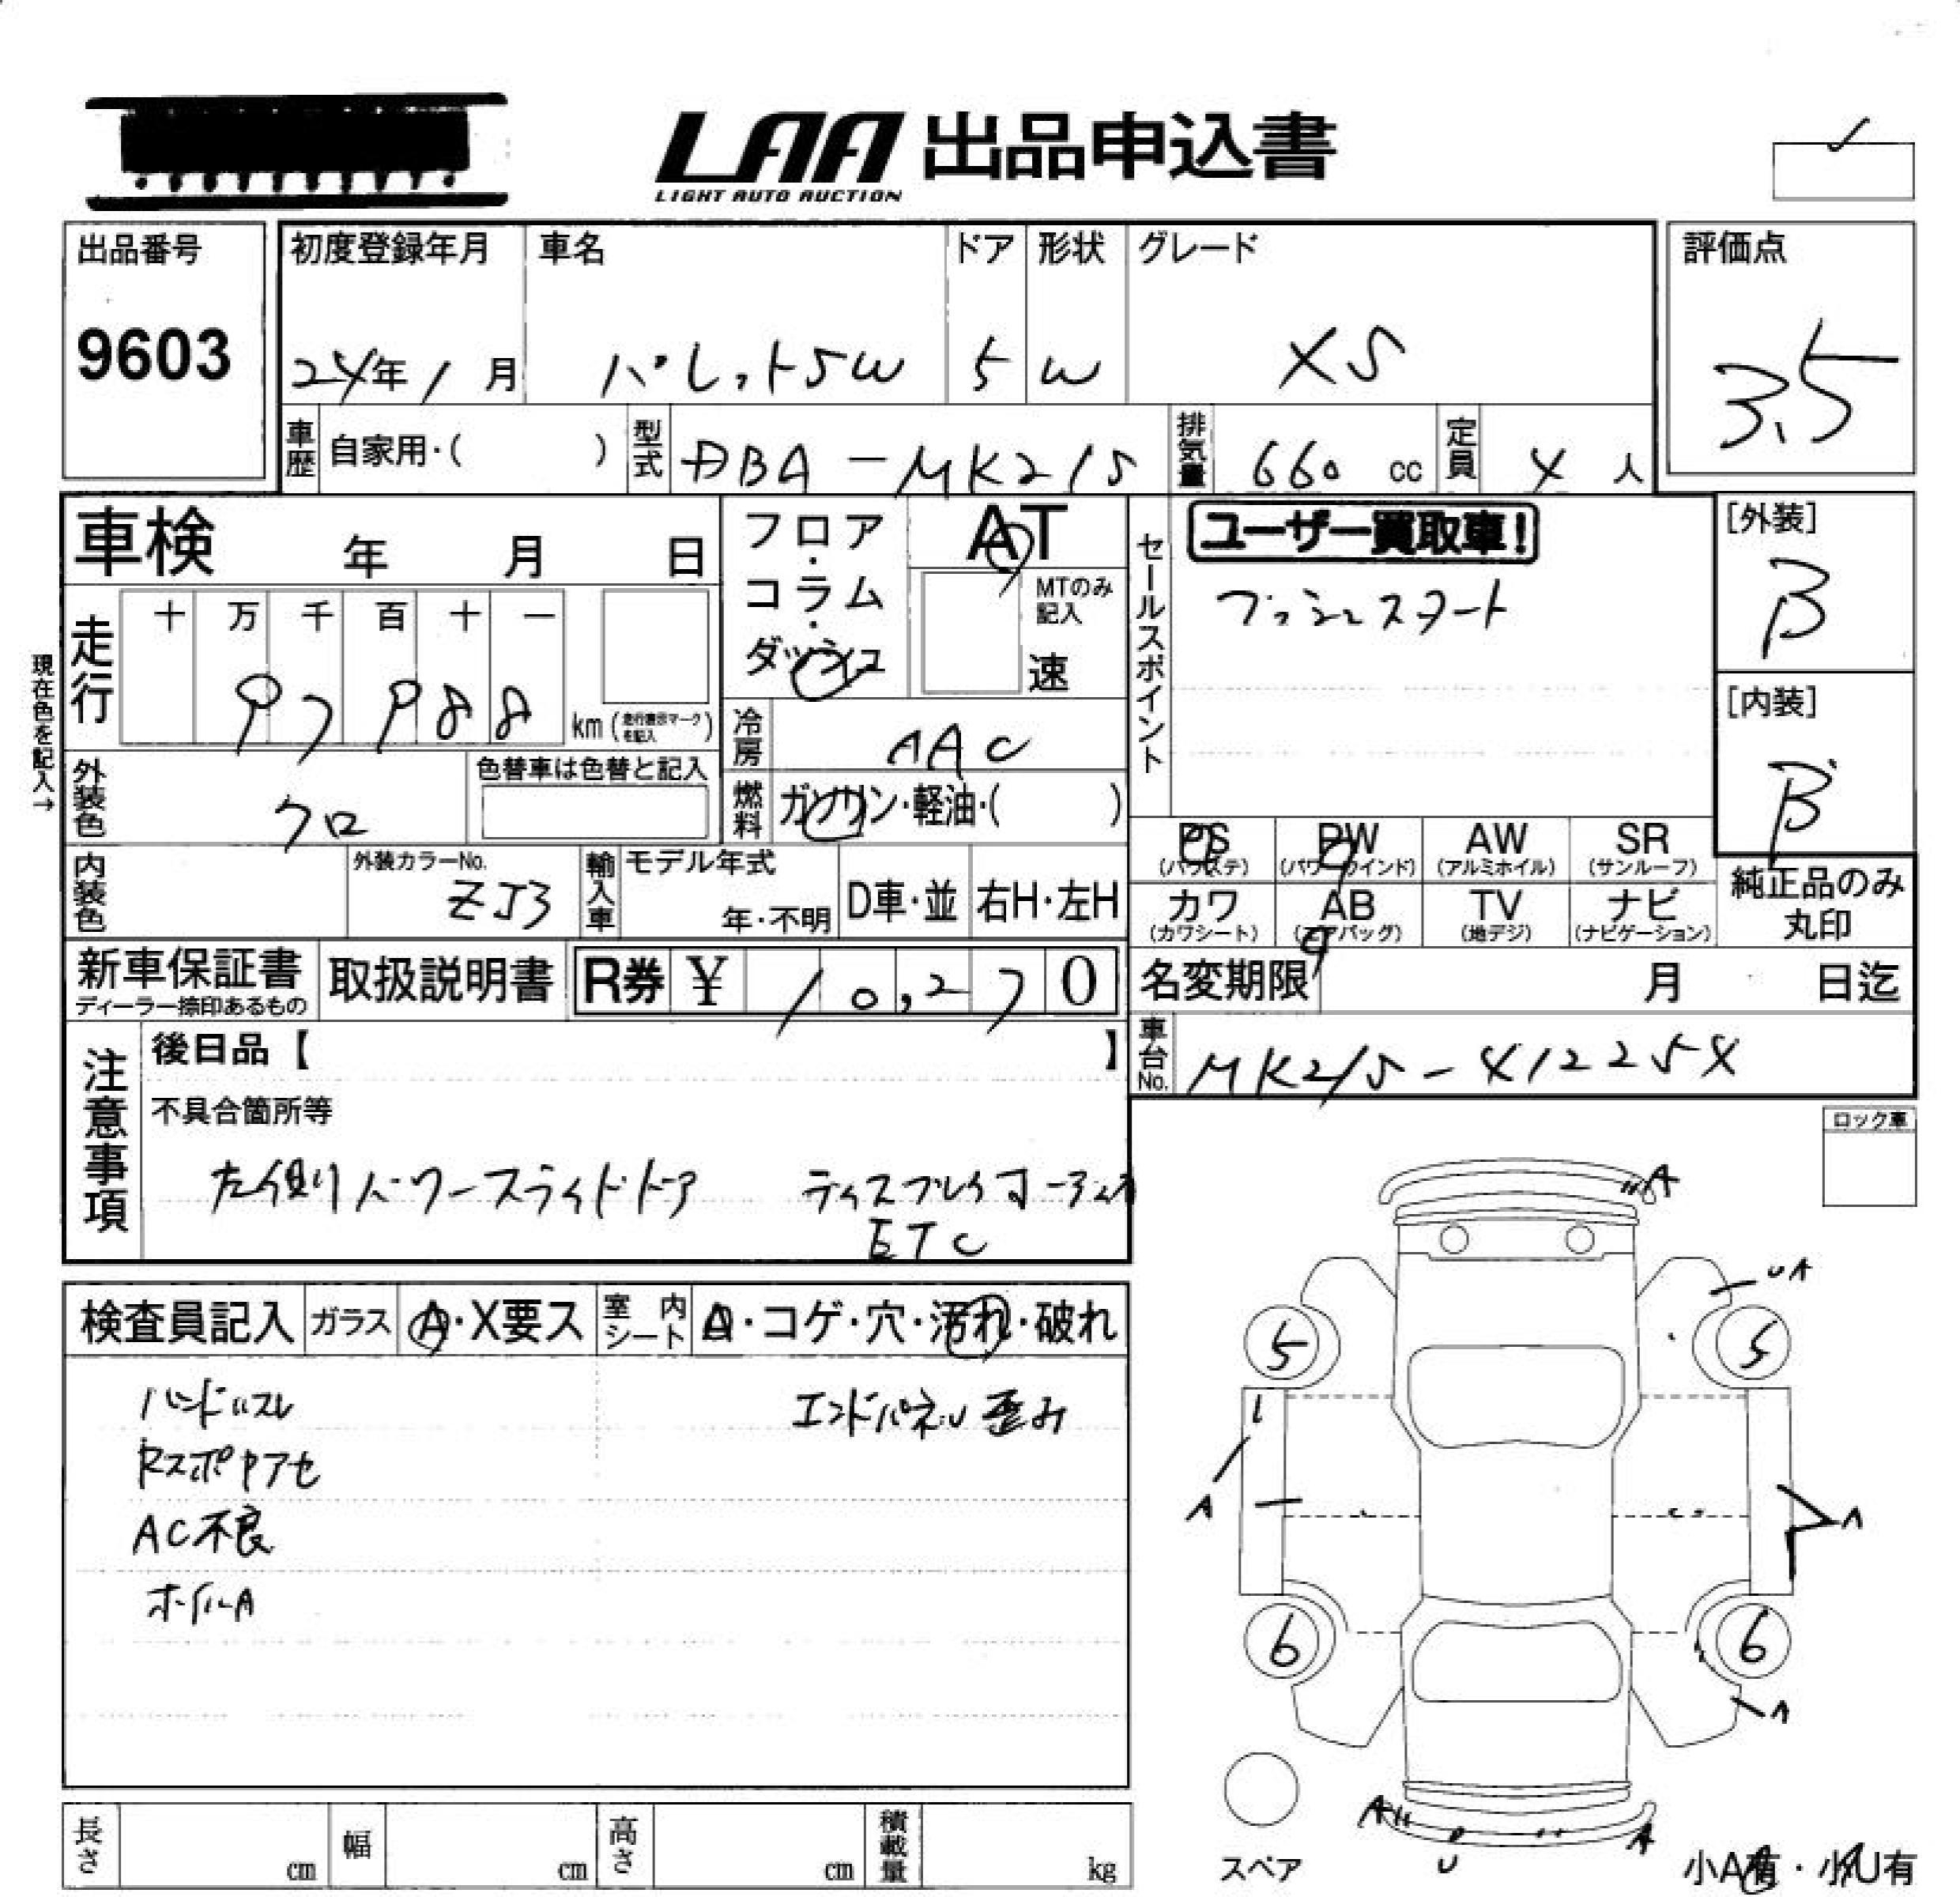 LAA 出品申込書
LIGHT AUTO AUCTION
出品番号
9603
初度登録年月
24年1月
車名
パレットSW
ドア
5
形状
W
グレード
XS
評価点
3.5
車歴
自家用・( )
型式
DBA-MK21S
排気量
660 cc
定員
4 人
車検 年 月 日
フロア・コラム・ダッシュ
AT
MTのみ記入
速
セールスポイント
ユーザー買取車!
プッシュスタート
[外装]
B
[内装]
B
現在色を記入→
走行
十 万 千 百 十 一
97988
km(走行表示マークを記入)
冷房
AAC
外装色
クロ
色替車は色替と記入
燃料
ガソリン・軽油・( )
内装色
外装カラーNo.
ZJ3
輸入車
モデル年式
年・不明
D車・並
右H・左H
PS
(パワステ)
PW
(パワーウインド)
AW
(アルミホイル)
SR
(サンルーフ)
カワ
(カワシート)
AB
(エアバッグ)
TV
(地デジ)
ナビ
(ナビゲーション)
純正品のみ
丸印
新車保証書
ディーラー捺印あるもの
取扱説明書
R券 ¥ 10,270
名変期限 月 日迄
車台No.
MK21S-412254
注意事項
後日品【 】
不具合箇所等
左側パワースライドドア ディスプレイオーディオ
ETC
ロック車
検査員記入
ガラス
A・X要ス
室内シート
A・コゲ・穴・汚れ・破れ
ハンドルスレ エンドパネル歪み
Rスポ中アセ
AC不良
ホイルA
A
UA
5 5
A
A
A
6 6
A
A
U
A
スペア
小A有・小U有
長さ cm
幅 cm
高さ cm
積載量 kg